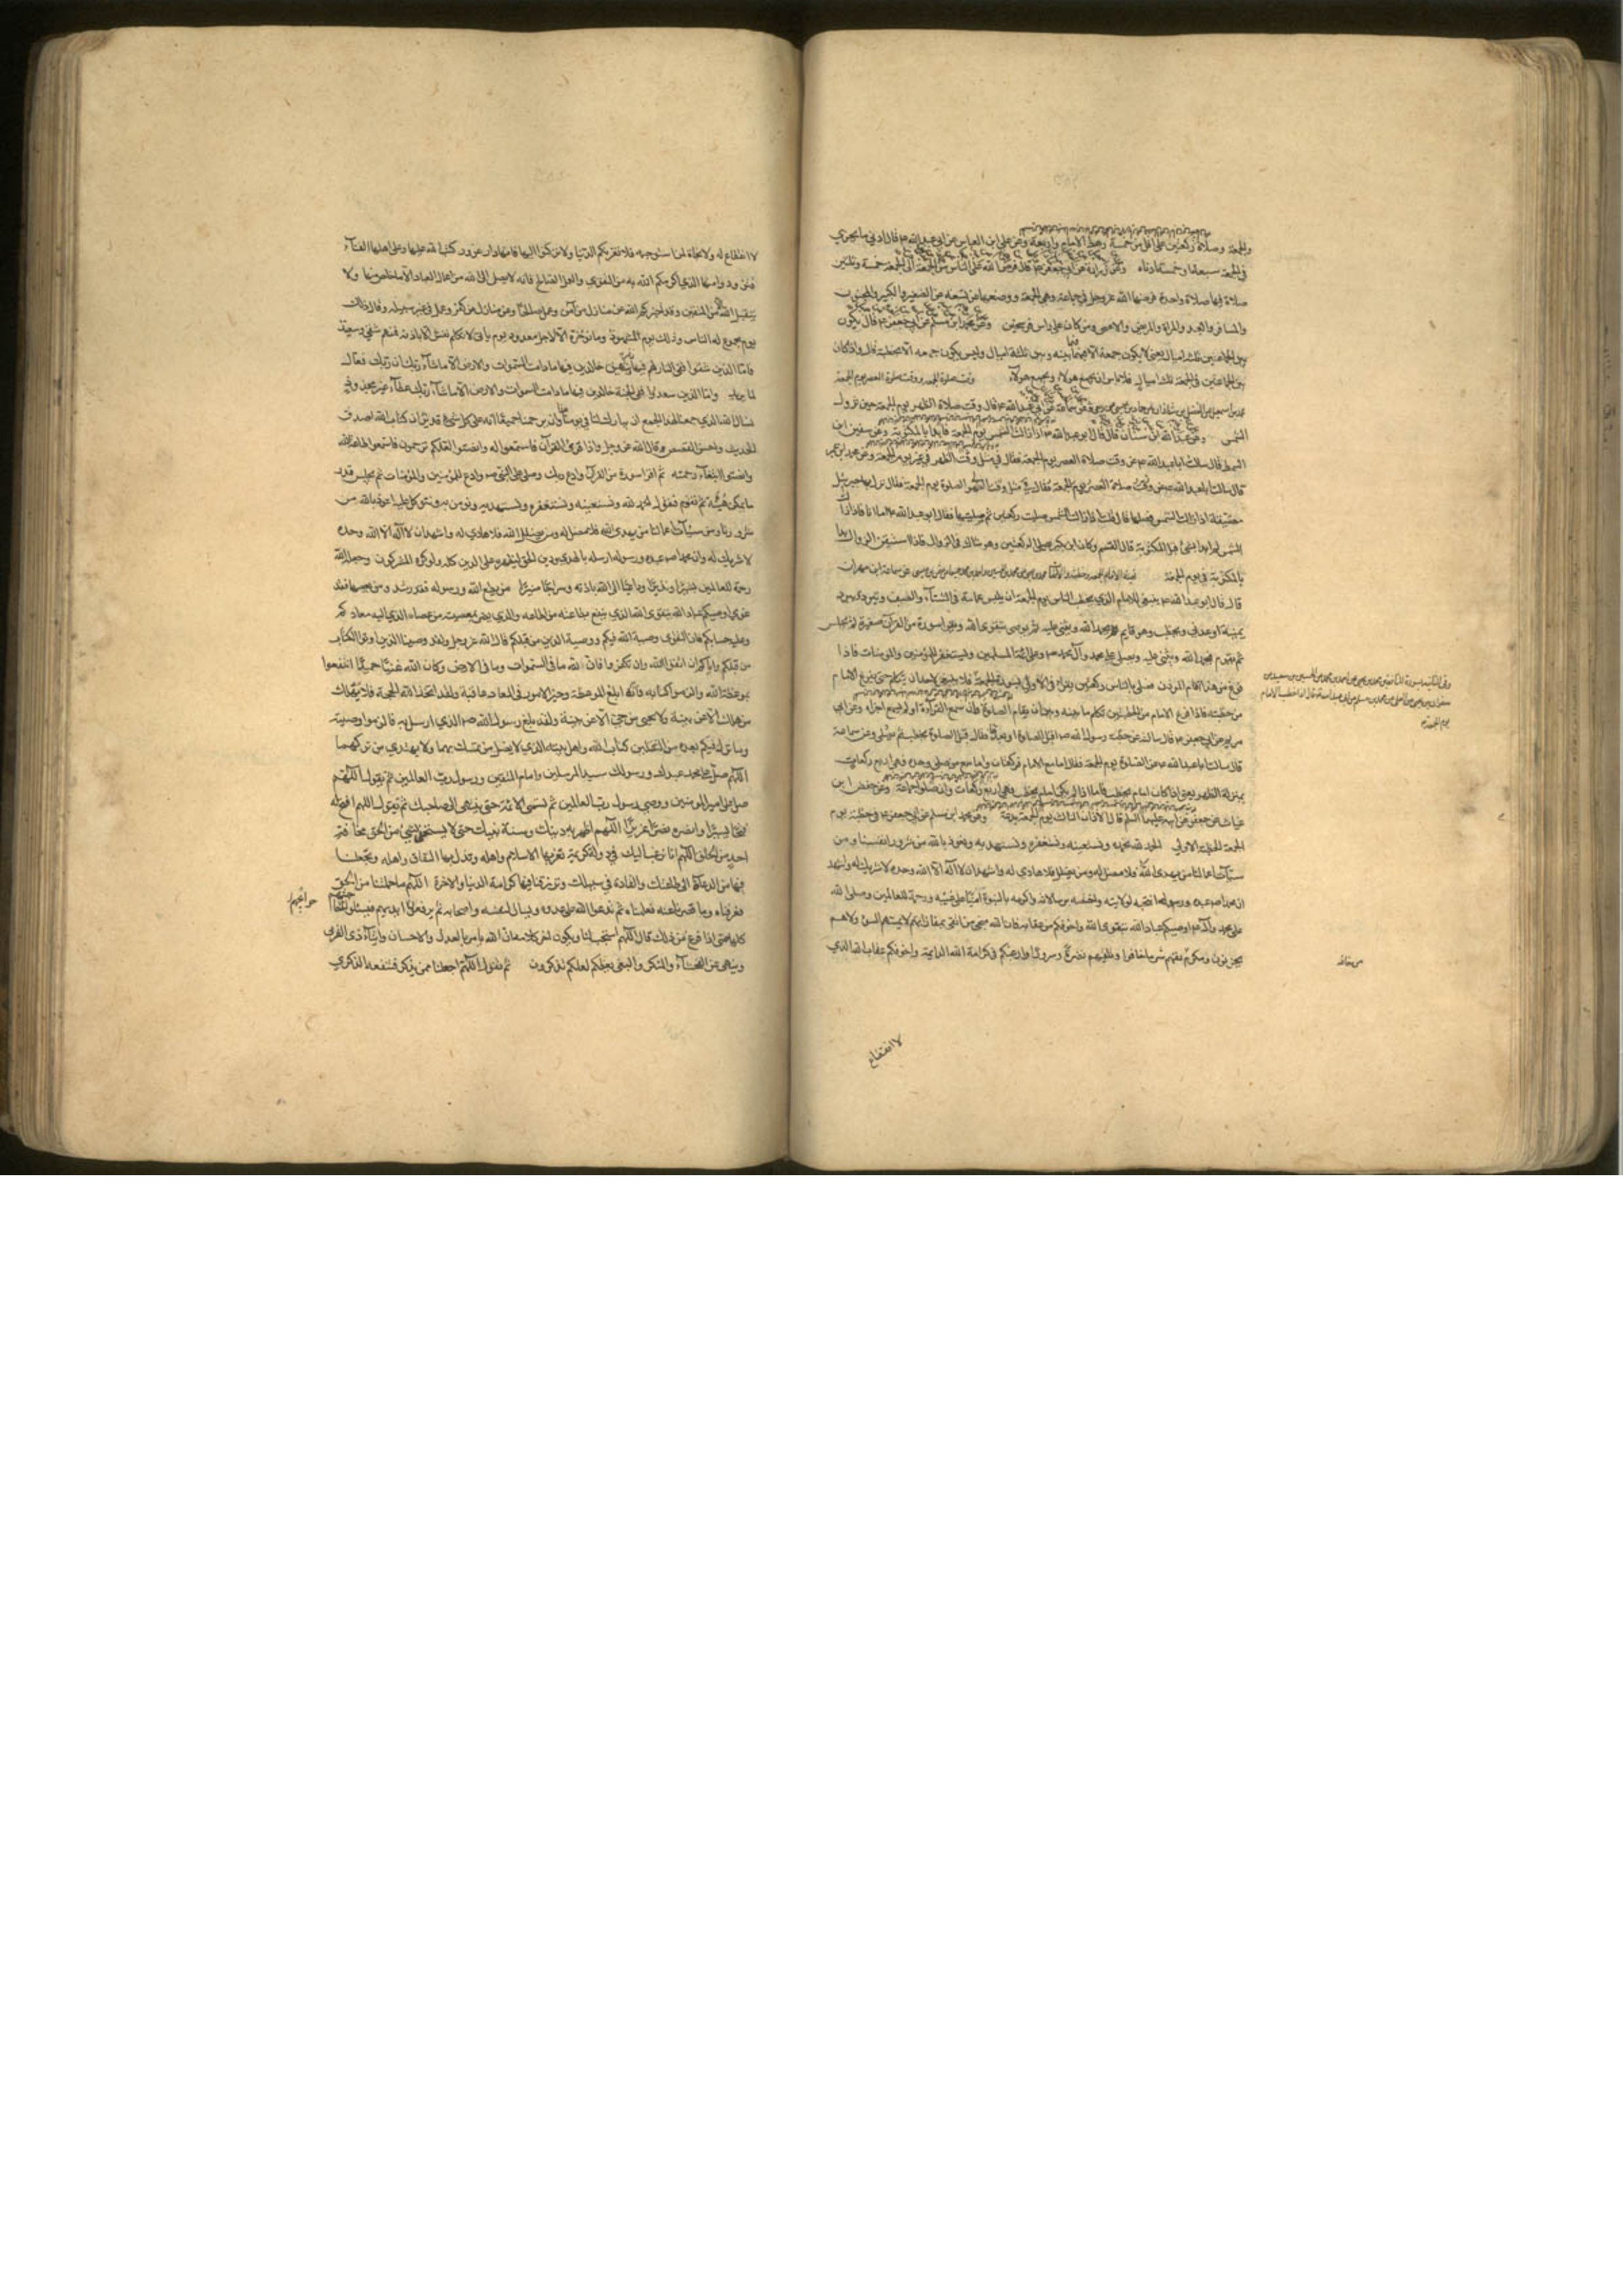 والجمعة وصلاة ركعتين على اقل من خمسة رهط الامام واربعة وعن على ابن العباس عن ابى عبد الله ع قال ادنى ما يجزي
في الجمعة سبعة او خمسة ادناه وعن زرارة عن ابى جعفر ع قال فرض الله على الناس من الجمعة الى الجمعة خمسة وثلثين
صلاة فيها صلاة واحدة فرضها الله عز وجل في جماعة وهى الجمعة ووضعها عن تسعة عن الصغير والكبير والمجنون
والمسافر والعبد والمراة والمريض والاعمى ومن كان على راس فرسخين وعن محمد ابن مسلم عن ابى جعفر ع قال يكون
بين الجماعتين ثلثة اميال يعنى لا يكون جمعة الا فيما بينه وبين ثلثة اميال وليس يكون جمعة الا بخطبة قال واذا كان
بين الجماعتين في الجمعة ثلثة اميال فلا باس ان يجمع هؤلاء ويجمع هؤلاء وقت صلوة الجمعة ووقت صلوة العصر يوم الجمعة
عن ابى عبد الله ع قال وقت صلاة الظهر يوم الجمعة حين تزول
الشمس وعن عبد الله ابن سنان قال قال ابو عبد الله ع اذا زالت الشمس يوم الجمعة فابدا بالمكتوبة وعن سفين ابن
السمط قال سالت ابا عبد الله ع عن وقت صلاة العصر يوم الجمعة فقال في مثل وقت الظهر في غير يوم الجمعة وعن محمد ابن ابى عمير
قال سالت ابا عبد الله ع عن الصلوة يوم الجمعة فقال نزل بها جبرئيل
مضيقة اذا زالت الشمس فصلها قال قلت اذا زالت الشمس صليت ركعتين ثم صليتها فقال ابو عبد الله ع اما انا فاذا زالت
الشمس لم ابدا بشئ قبل المكتوبة قال القسم وكان ابن بكير يصلى الركعتين وهو شاك في الزوال فاذا استيقن الزوال بدا
بالمكتوبة في يوم الجمعة عن سماعة ابن مهران
قال قال ابو عبد الله ع ينبغى للامام الذي يخطب الناس يوم الجمعة ان يلبس عمامة في الشتاء والصيف ويتردى ببرد
يمنية او عدني ويخطب وهو قايم يحمد الله ويثنى عليه ثم يوصى بتقوى الله ويقرا سورة من القرآن صغيرة ثم يجلس
ثم يقوم فيحمد الله ويثنى عليه ويصلى على محمد وآل محمد ص وعلى ائمة المسلمين ويستغفر للمؤمنين والمؤمنات فاذا
فرغ من هذا اقام المؤذن فصلى بالناس ركعتين يقراء في الاولى بسورة الجمعة فلا ينبغى لاحد ان يتكلم حتى يفرغ الامام
من خطبته فاذا فرغ الامام من الخطبتين تكلم ما بينه وبين ان يقام الصلوة فان سمع القراءة او لم يسمع اجزاه وعن ابى
مريم عن ابى جعفر ع قال سالته عن خطبة رسول الله ص اقبل الصلوة او بعد فقال قبل الصلوة يخطب ثم يصلى وعن سماعة
قال سالت ابا عبد الله ع عن الصلوة يوم الجمعة فقال اما مع الامام فركعتان واما مع من يصلى وحده فهى اربع ركعات
بمنزلة الظهر يعنى اذا كان امام يخطب فاما اذا لم يكن امام يخطب فهى اربع ركعات وان صلوا جماعة وعن حفص ابن
غياث عن جعفر عن ابيه عليهما السلم قال الاذان الثالث يوم الجمعة بدعة وعن محمد ابن مسلم عن ابى جعفر ع في خطبة يوم
الجمعة الخطبة الاولى الحمد لله نحمده ونستعينه ونستغفره ونستهديه ونعوذ بالله من شرور انفسنا ومن
سيئات اعمالنا من يهدى الله فلا مضل له ومن يضلل فلا هادي له واشهد ان لا اله الا الله وحده لا شريك له واشهد
ان محمدا عبده ورسوله انتجبه لولايته واختصه برسالاته واكرمه بالنبوة امينا على غيبه ورحمة للعالمين وصلى الله
على محمد وآله ع اوصيكم عباد الله بتقوى الله واخوفكم من عقابه فان الله ينجى من اتقى بمفازتهم لا يمسهم السوء ولا هم
يحزنون ومكرم يقيهم شر ما خافوا ويلقيهم نضرة وسرورا وارغبكم في كرامة الله الدايمة واخوفكم عقاب الله الذي
يوم الجمعة
من خافه
لا انقطاع
لا انقطاع له ولا نجاة لمن استوجبه فلا تغرنكم الدنيا ولا تركنوا اليها فانها دار غرور كتب الله عليها وعلى اهلها الفنآء
فتزودوا منها الذي اكرمكم الله به من التقوى والعمل الصالح فانه لا يصل الى الله من اعمال العباد الا ما خلص منها ولا
يتقبل الله الا من المتقين وقد اخبركم الله عن منازل من آمن وعمل صالحا وعن منازل من كفر وعمل في غير سبيله وقال ذلك
يوم مجموع له الناس وذلك يوم مشهود وما نؤخره الا لاجل معدود يوم يأت لا تكلم نفس الا باذنه فمنهم شقى وسعيد
فامّا الذين شقوا ففى النار لهم فيها زفير وشهيق خالدين فيها ما دامت السموات والارض الا ما شآء ربك ان ربك فعال
لما يريد وامّا الذين سعدوا ففى الجنة خالدين فيها ما دامت السموات والارض الا ما شآء ربك عطآء غير مجذوذ
نسال الله الذي جمعنا لهذا الجمع ان يبارك لنا في يومنا وان يرحمنا جميعا انه على كل شئ قدير ان كتاب الله اصدق
الحديث واحسن القصص وقال الله عز وجل واذا قرئ القرآن فاستمعوا له وانصتوا لعلكم ترحمون فاسمعوا طاعة لله
وانصتوا ابتغآء رحمته ثم اقرا سورة من القرآن وادع ربك وصل على النبى ص وادع للمؤمنين والمؤمنات ثم تجلس قدر
ما يمكن هنيئة ثم تقوم فتقول الحمد لله نحمده ونستعينه ونستغفره ونستهديه ونؤمن به ونتوكل عليه ونعوذ بالله من
شرور انفسنا ومن سيئات اعمالنا من يهدى الله فلا مضل له ومن يضلل الله فلا هادي له واشهد ان لا اله الا الله وحده
لا شريك له وان محمدا عبده ورسوله ارسله بالهدى ودين الحق ليظهره على الدين كله ولو كره المشركون وجعله
رحمة للعالمين بشيرا ونذيرا وداعيا الى الله باذنه وسراجا منيرا من يطع الله ورسوله فقد رشد ومن يعصهما فقد
غوى اوصيكم عباد الله بتقوى الله الذي ينفع بطاعته من اطاعه والذي يضر بمعصيته من عصاه الذي اليه معادكم
وعليه حسابكم فان التقوى وصية الله فيكم ووصية الذين من قبلكم قال الله عز وجل ولقد وصينا الذين اوتوا الكتاب
من قبلكم واياكم ان اتقوا الله وان تكفروا فان لله ما في السموات وما في الارض وكان الله غنيا حميدا انتفعوا
بموعظة الله والزموا كتابه فانه ابلغ الموعظة وخير الامور في المعاد عاقبة ولقد اتخذ الله الحجة فلا يهلك
من هلك الا عن بينة ولا يحيى من حى الا عن بينة ولقد بلغ رسول الله ص الذي ارسل به فالزموا وصيته
وما ترك فيكم بعده من الثقلين كتاب الله واهل بيته الذي لا يضل من تمسك بهما ولا يهتدي من تركهما
اللهم صل على محمد عبدك ورسولك سيد المرسلين وامام المتقين ورسول رب العالمين ثم تقول اللهم
صل على امير المؤمنين ووصى رسول رب العالمين ثم تسمى الائمة حتى ينتهى الى صاحبك ثم تقول اللهم افتح له
فتحا يسيرا وانصره نصرا عزيزا اللهم اظهر به دينك وسنة نبيك حتى لا يستخفى بشئ من الحق مخافة
احد من الخلق اللهم انا نرغب اليك في دولة كريمة تعز بها الاسلام واهله وتذل بها النفاق واهله وتجعلنا
فيها من الدعاة الى طاعتك والقادة في سبيلك وترزقنا فيها كرامة الدنيا والاخرة اللهم ما حملتنا من الحق
فعرفناه وما قصرنا عنه فعلمناه ثم تدعو الله على عدوه ويسال لنفسه واصحابه ثم يرفعون ايديهم فيسئلون الله
حوائجهم
كلها حتى اذا فرغ من ذلك قال اللهم استجب لنا ويكون اخر كلامه ان الله يامر بالعدل والاحسان وايتآء ذى القربى
وينهى عن الفحشآء والمنكر والبغى يعظكم لعلكم تذكرون ثم يقول اللهم اجعلنا ممن يذكر فتنفعه الذكرى